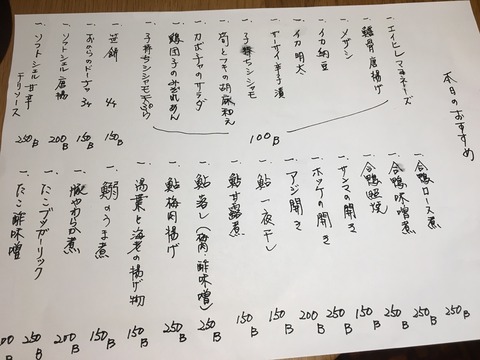 本日のおすすめ
一、エイヒレマヨネーズ
一、軟骨唐揚げ
一、メザシ
一、イカ納豆
一、イカ明太
一、ザーサイ辛子漬
一、子持ちシシャモ
一、筍とフキの胡麻和え
一、カボチャのサラダ
一、鶏団子のみぞれあん
一、子持ちシシャモ天ぷら
100B
一、笹餅 4ヶ 150B
一、おからのドーナツ 3ヶ 150B
一、ソフトシェル唐揚 200B
一、ソフトシェル甘辛
テリソース 250B
一、合鴨ロース煮 250B
一、合鴨味噌煮 250B
一、合鴨照焼 250B
一、サンマの開き 150B
一、ホッケの開き 250B
一、アジ開き 200B
一、鮎一夜干し 150B
一、鮎甘露煮 150B
一、鮎蒸し(梅肉・酢味噌) 250B
一、鮎梅肉揚げ 250B
一、湯葉と海老の揚げ物 150B
一、鰯のうま煮 150B
一、豚やわらか煮 200B
一、たこブツガーリック 250B
一、たこ酢味噌 00B